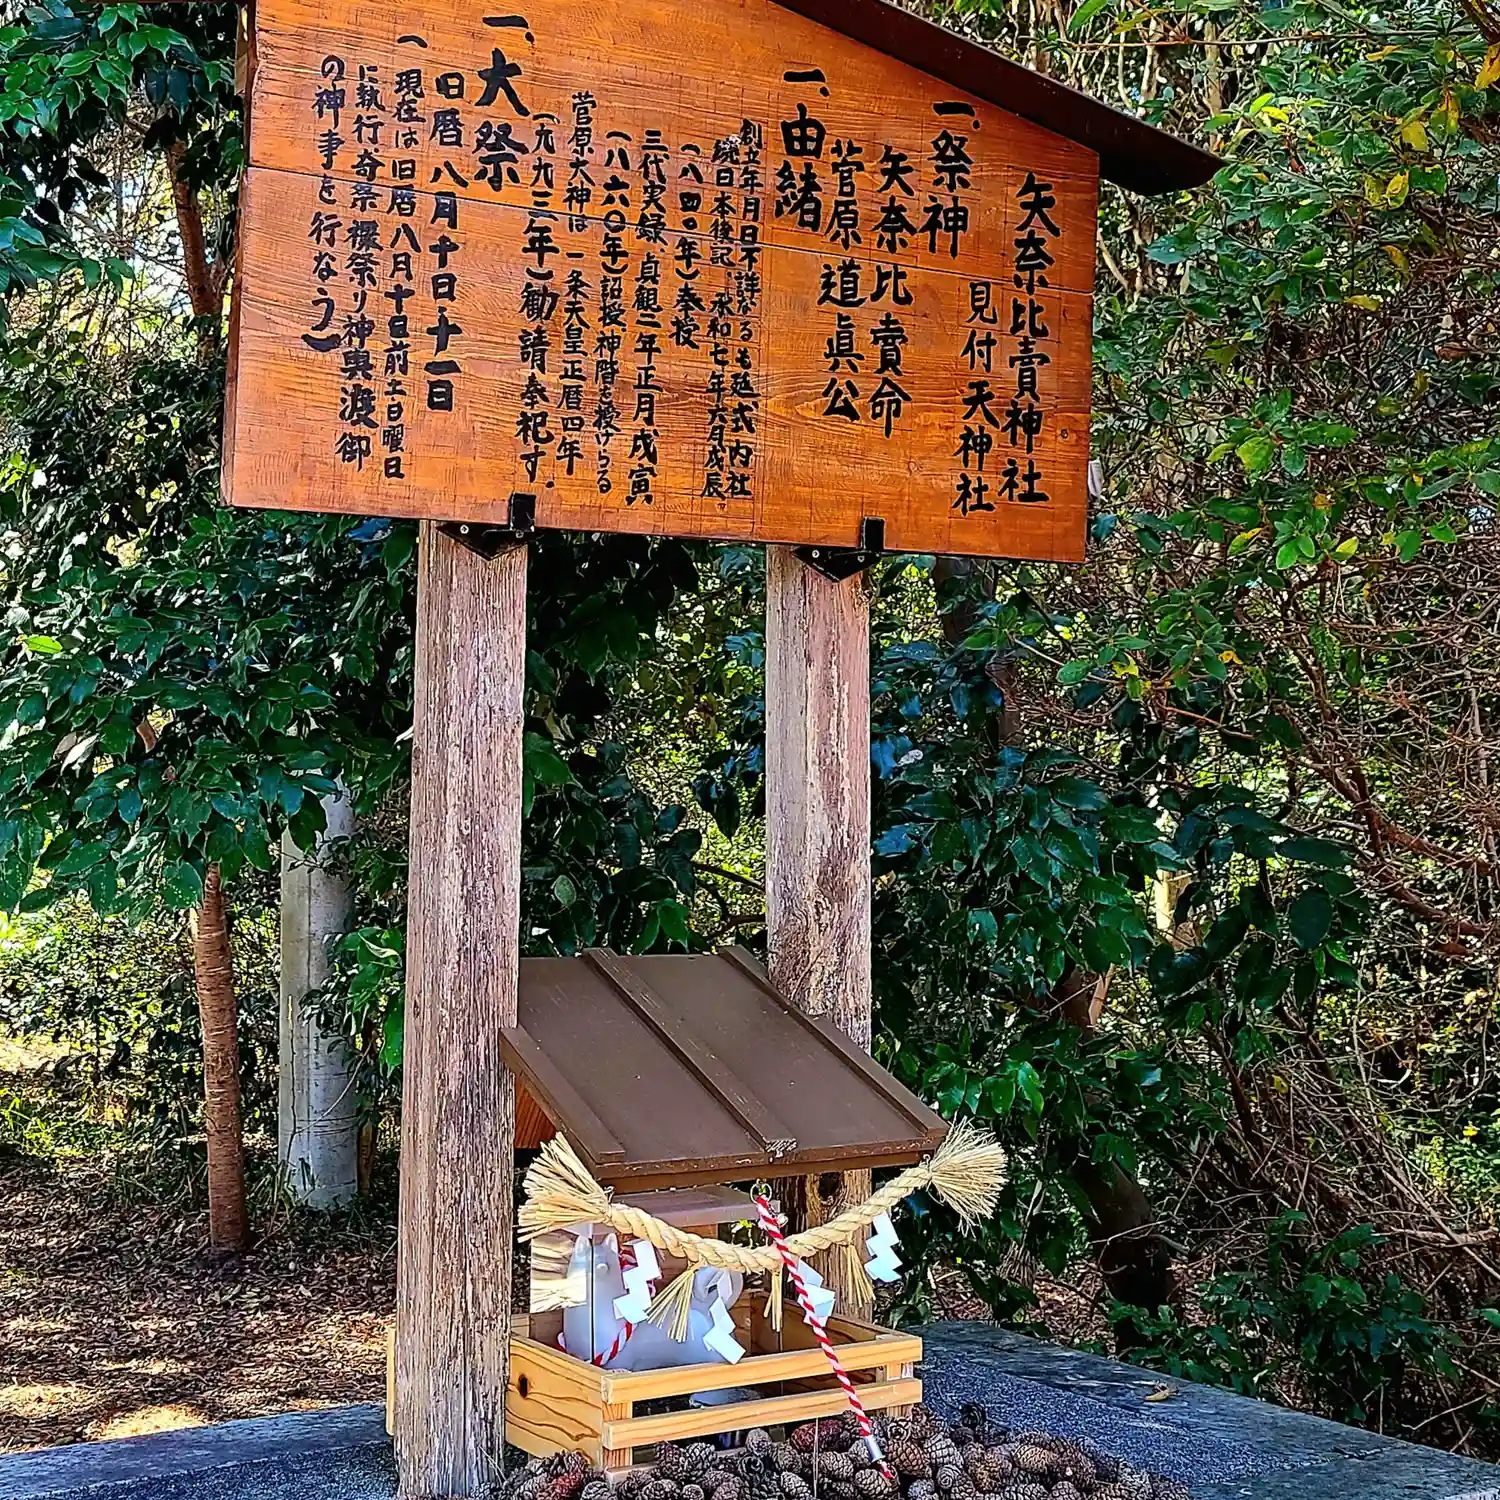 矢奈比賣神社
見付天神社
一、祭神
矢奈比賣命
菅原道眞公
一、由緒
創立年月日不詳なるも延式内社
続日本後記、承和七年六月戊辰
(八四〇年)奉授
三代実録、貞観二年正月戊寅
(八六〇年)詔授、神階を授けらる
菅原大神は 一条天皇正暦四年
(九九三年)勧請奉祀す。
一、大祭
旧暦八月十日、十一日
(現在は旧暦八月十日前土日曜日
に執行奇祭裸祭り神輿渡御
の神事を行なう)